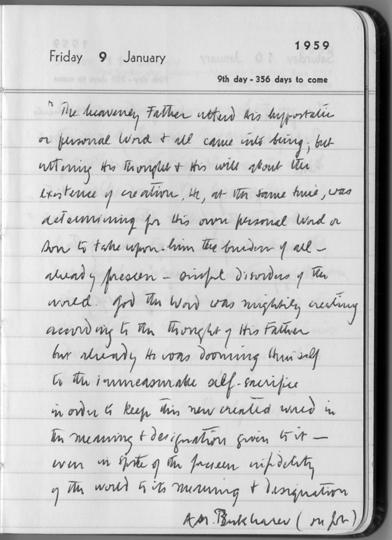 1959
Friday 9 January
9th day - 356 days to come
" The heavenly Father uttered His hypostatic
or personal Word & all came into being; but
uttering His thought & His will about the
existence of creation, He, at the same time, was
determining for His own personal Word or
Son to take upon him the burden of all -
already foreseen - sinful disorders of the
world. God the Word was mightily creating
according to the thought of His Father
but already He was dooming Himself
to the immeasurable self-sacrifice
in order to keep this new created world in
the meaning & designation given to it -
even in spite of the foreseen infidelity
of the world to its meaning & designation
A.M. Bukharev (on